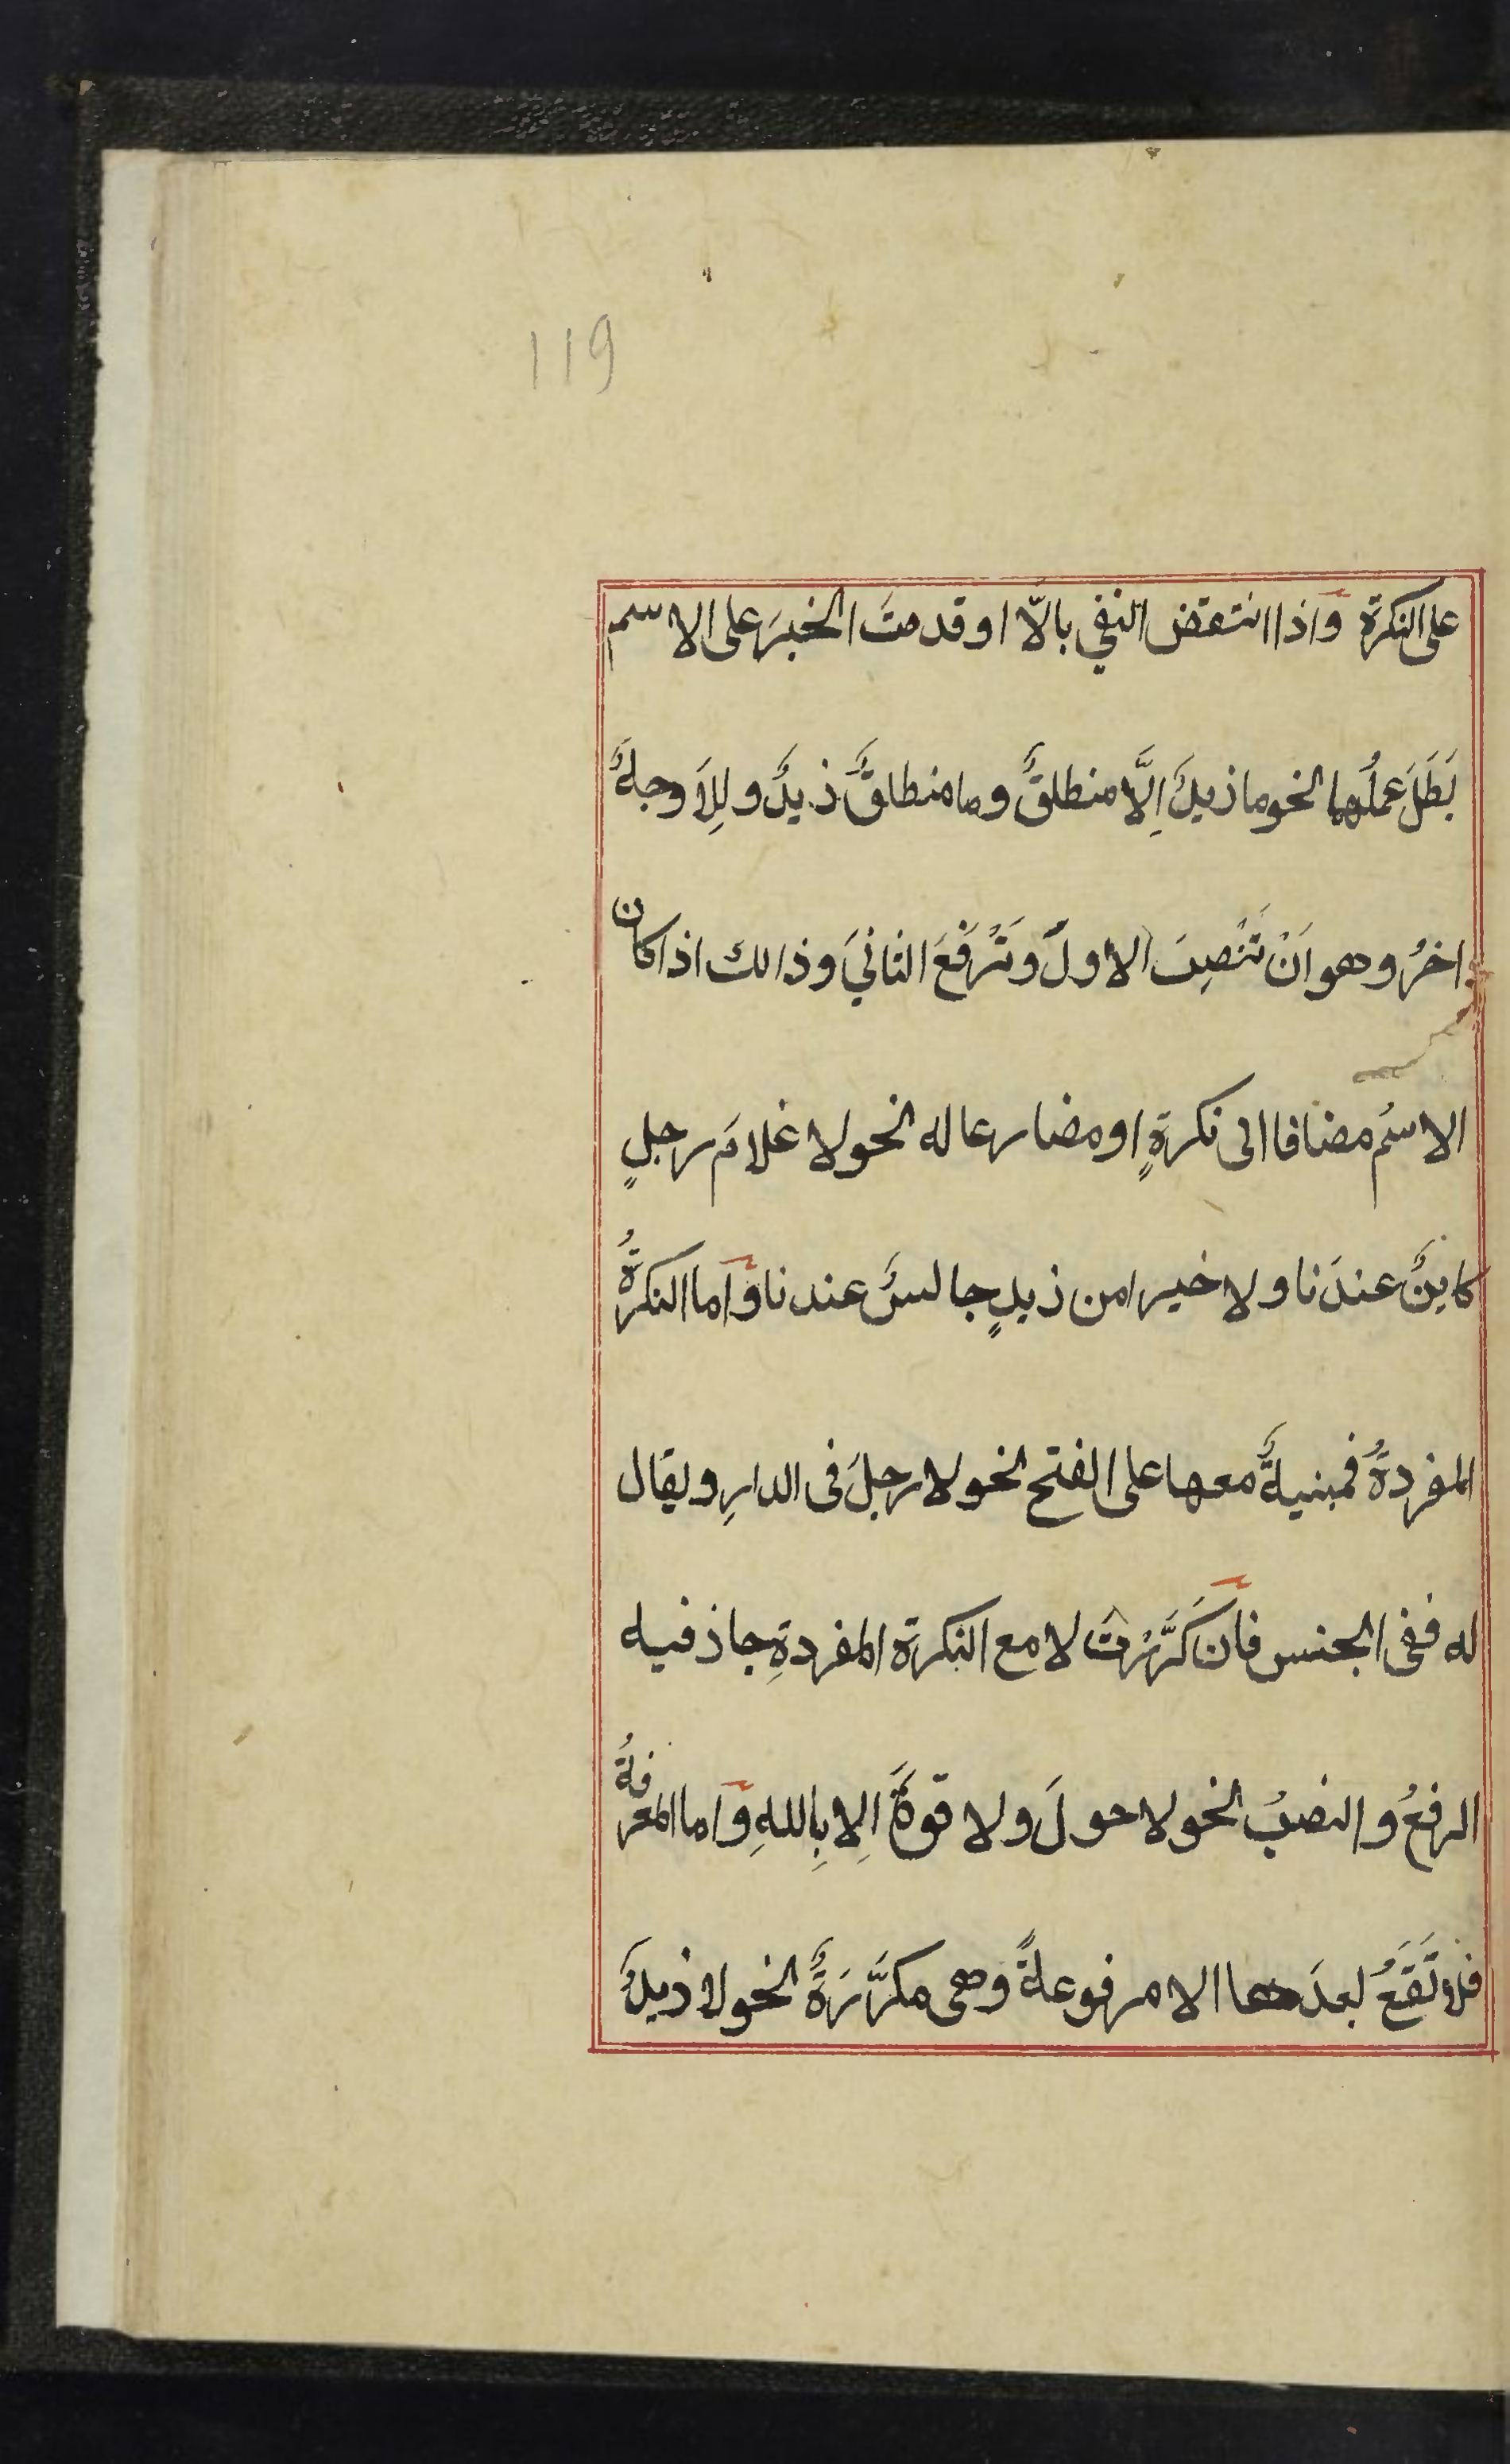 119
على النكرة واذا انتقض النفي بالّا او قدمتَ الخبرَ على الاسم
بَطَلَ عملُهما نحو ما زيدٌ اِلَّا منطلقٌ وما منطلقٌ زيدٌ و لِلاَ وجهٌ
اخرُ وهو اَنْ تَنْصِبَ الاولَ وَتَرْفَعَ الثانيَ وذالك اذا كان
الاسمُ مضافا الى نكرةٍ او مضارعا له نحو لا غلامَ رجلٍ
كاينٌ عندَنا ولا خيرا من زيدٍ جالسٌ عندنا واما النكرةُ
المفردةُ فمبنيةٌ معها على الفتح نحو لا رجلَ فى الدارِ ويقال
له نفى الجنس فان كَرَّرْتَ لا مع النكرة المفردةِ جاز فيه
الرفعُ والنصبُ نحو لا حولَ ولا قوةَ اِلا بِاللهِ واما المعرفةُ
فلا تَقَعُ بعدَها الا مرفوعةً وهى مكرَّرَةٌ نحو لا زيدٌ